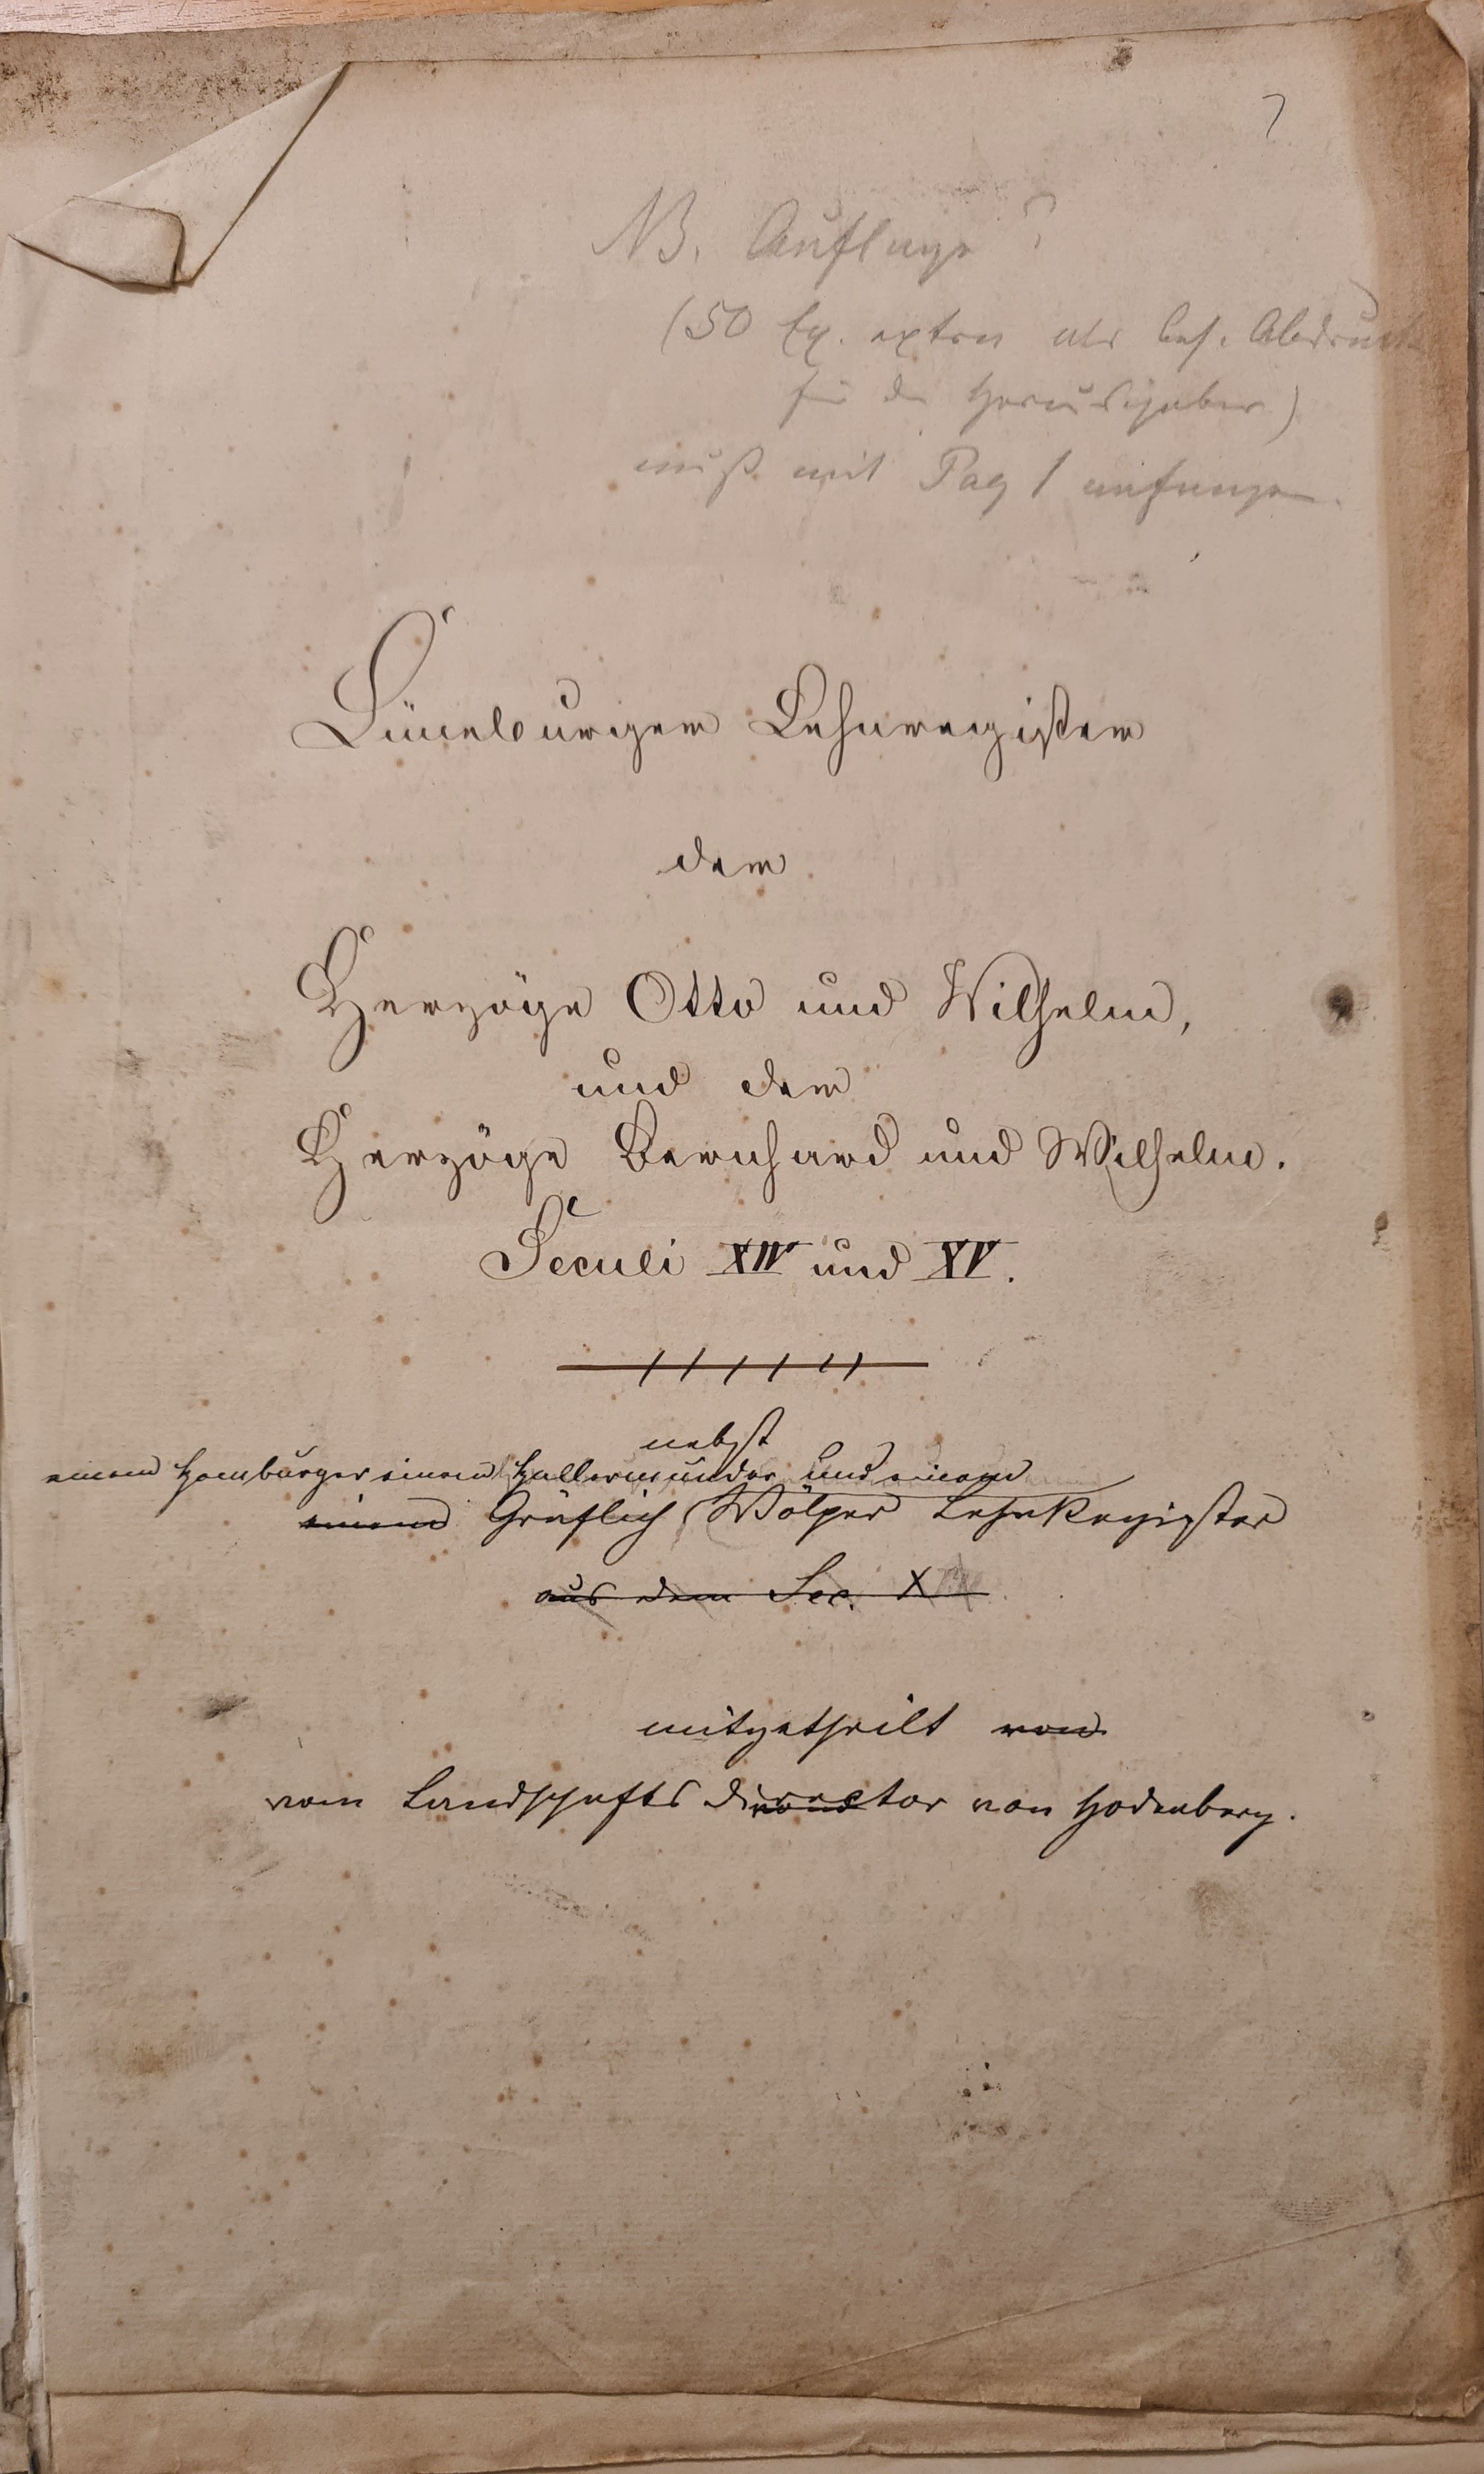 NB. Auflage?
(50 Ex. extra als bes. Abdruck
für den Herausgeber)
muß mit Pag 1 anfangen.
Lüneburger Lehnregister
der
Herzöge Otto und Wilhelm,
und der
Herzöge Bernhard und Wilhelm.
Seculi XIV und XV.
nebst
einem Homburger einem Hallermunder und einem
einem Gräflich Wölper LehnRegister
aus dem Sec. X
mitgetheilt von
vom Landschafts Director von Hodenberg.